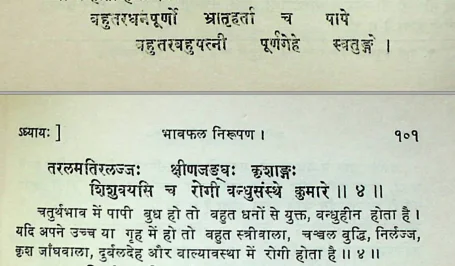 बहुतरधनपूर्णो भ्रातृहर्ता च पापे
बहुतरबहुपत्नी पूर्णगेहे स्वतुङ्गे ।
ऽध्यायः ] भावफल निरूपण । १०१
तरलमतिरलज्जः क्षीणजङ्घः कृशाङ्गः
शिशुवयसि च रोगी बन्धुसंस्थे कुमारे ॥ ४ ॥
चतुर्थभाव में पापी बुध हो तो बहुत धनों से युक्त, बन्धुहीन होता है ।
यदि अपने उच्च या गृह में हो तो बहुत स्त्रीवाला, चञ्चल बुद्धि, निर्लज्ज,
कृश जाँघवाला, दुर्वलदेह और वाल्यावस्था में रोगी होता है ॥ ४ ॥